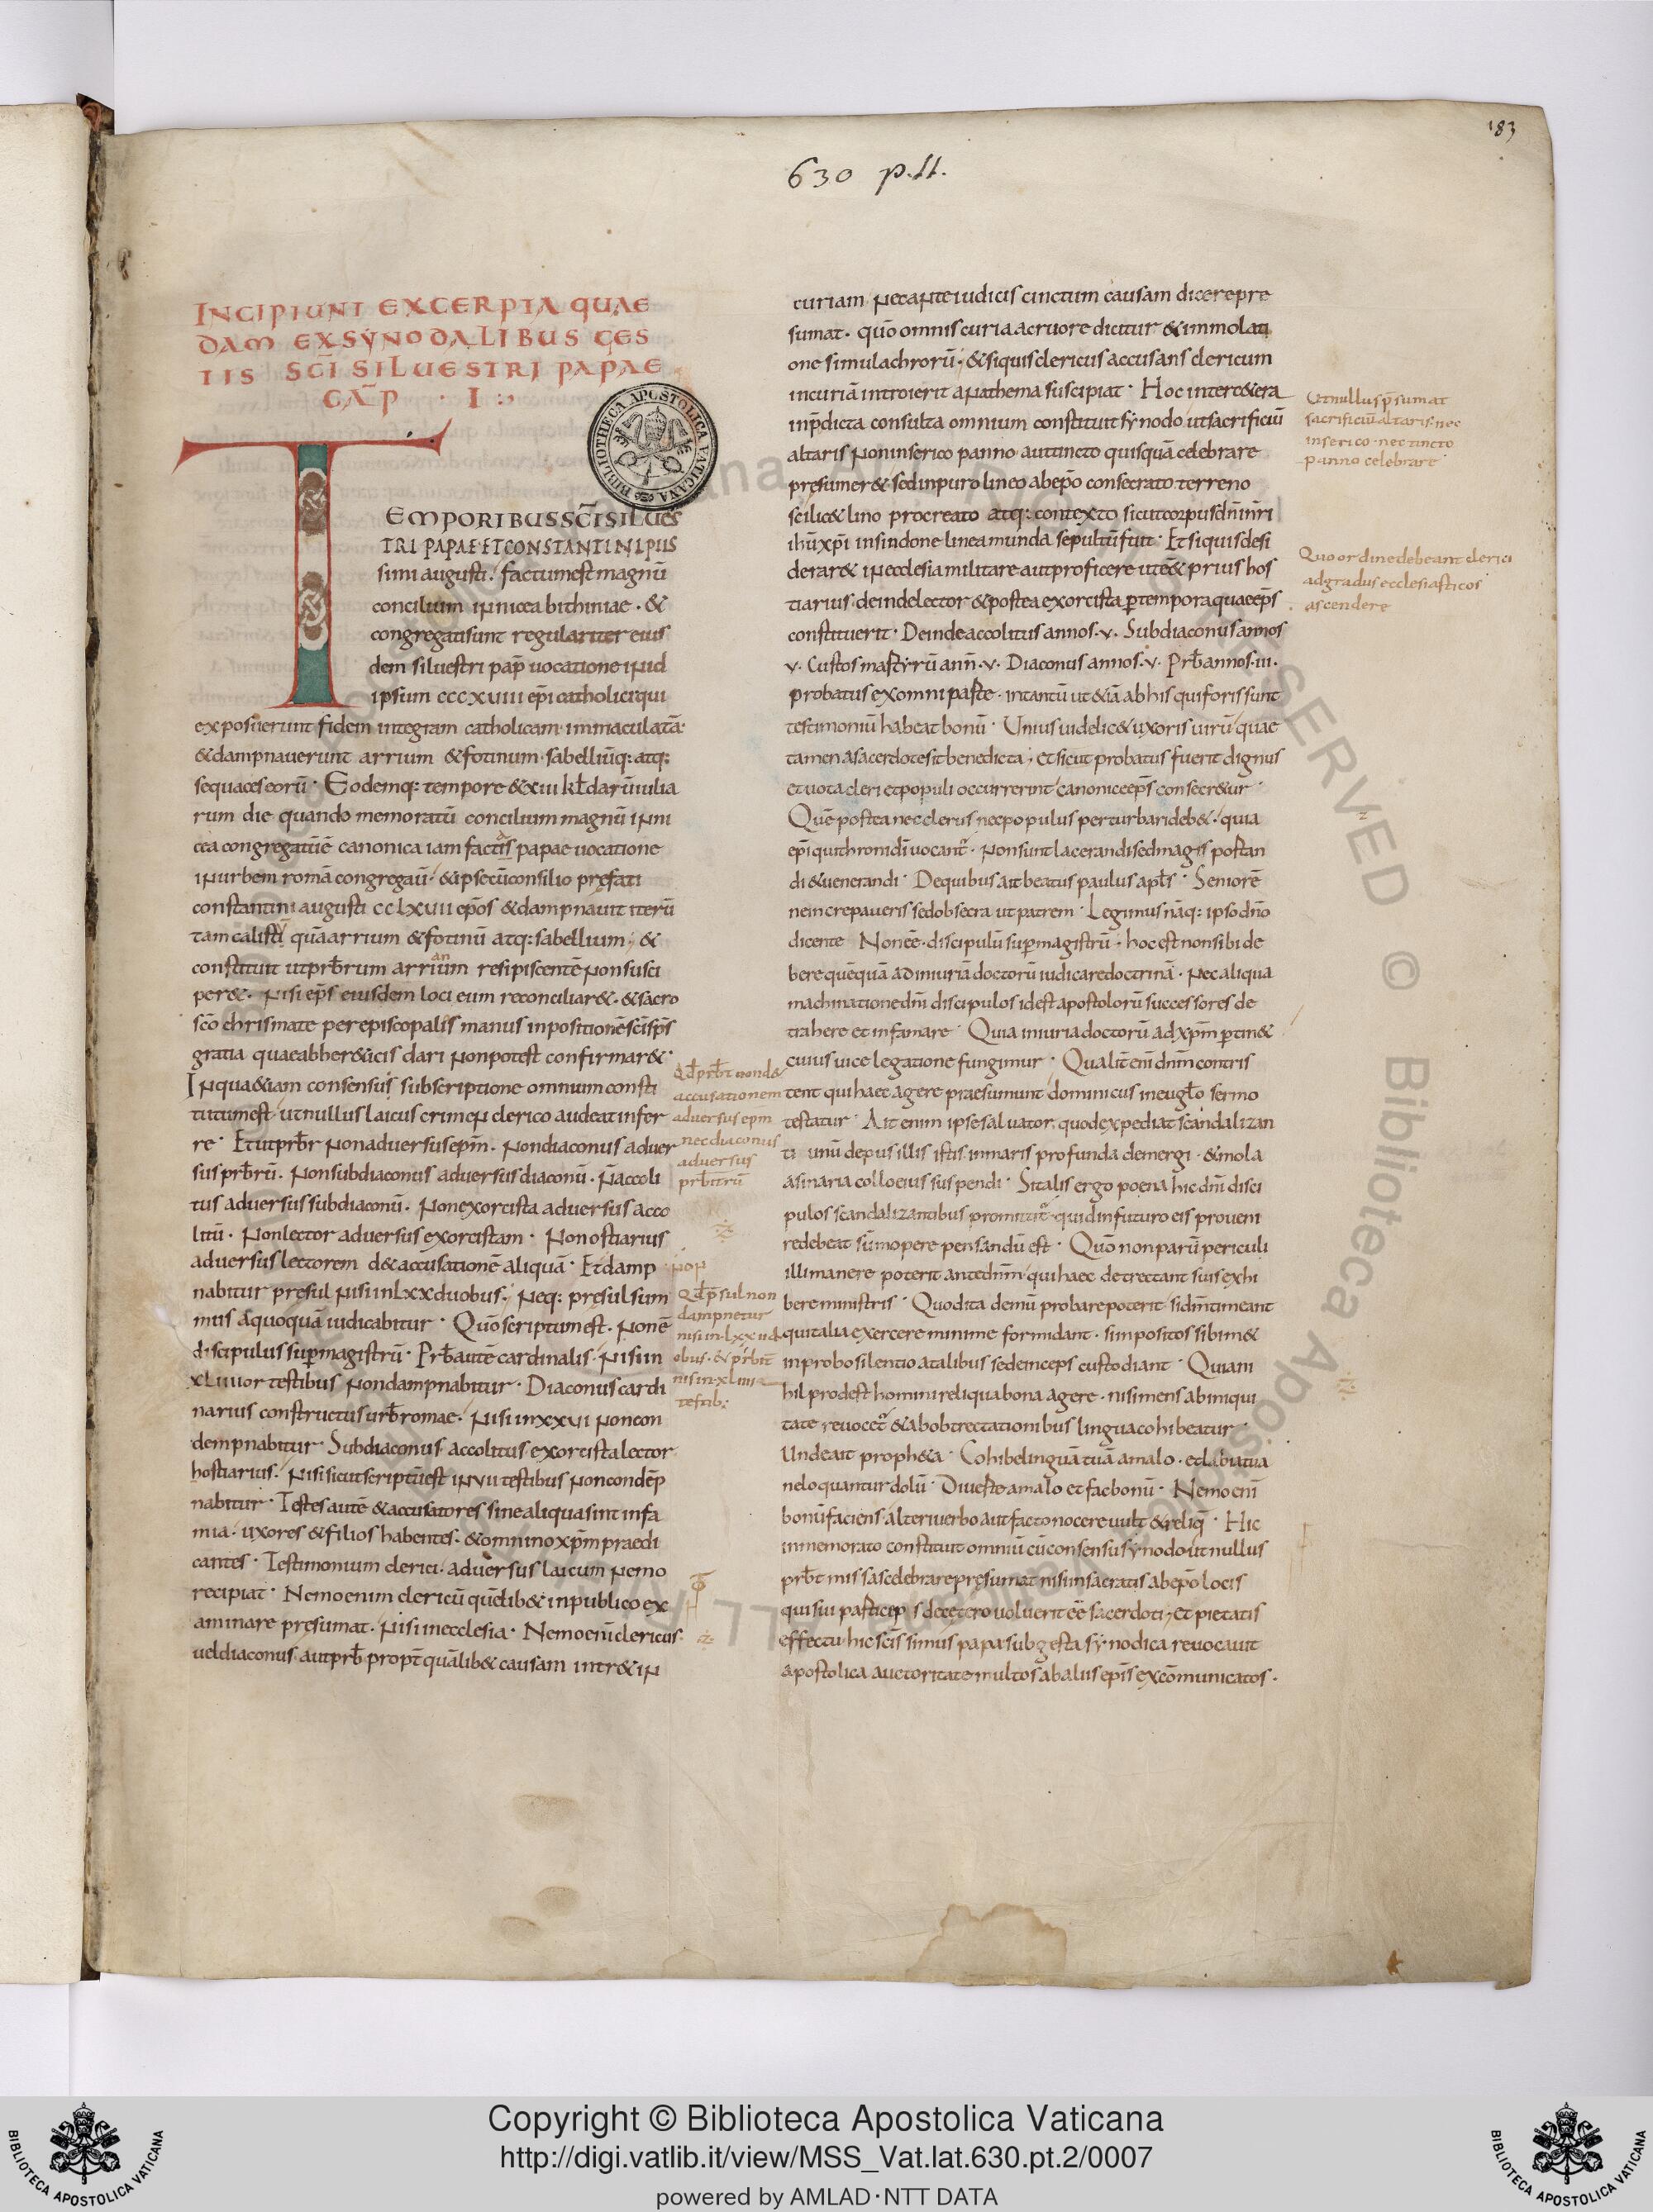 183
630 p.II.
INCIPIUNT EXCERPTA QUAE
DAM EX SYNODALIBUS GES
TIIS SCI SILUESTRI PAPAE
CAP · I ·
TEMPORIBUS SCI SILUES
TRI PAPAE ET CONSTANTINI PIIS
simi augusti. factum est magnū
concilium in nicea bithiniae · &
congregati sunt regulariter eius
dem siluestri pap uocatione inid
ipsum cccxuiii epi catholici qui
exposuerunt fidem integram catholicam immaculatā·
& dampnauerunt arrium & fotinum· sabelliūq: atq:
sequaces eorū· Eodemq: tempore & xiii kłdarū iulia
rum die quando memoratū concilium magnū inni
cea congregatū ē canonica iam facti papae uocatione
in urbem romā congregauˉ· & ipse cū consilio pręfati
constantini augusti cclxuii epos & dampnauit iterū
tam calisti quā arrium & fotinū atq: sabellium; &
constituit ut prbrum arrianum resipiscentē non susci
per&· Nisi eps eiusdem loci eum reconciliar&· & sacro
sco chrismate per episcopalis manus inpositionē sci sps
gratia quae ab her&icis dari non potest confirmar&·
In qua &iam consensus subscriptione omnium consti
tutum est· ut nullus laicus crimen clerico audeat infer
re· Et ut prbr non aduersus epm· Non diaconus aduer
sus prbrū· Non subdiaconus aduersus diaconū· N accoli
tus aduersus subdiaconū· Non exorcista aduersus acco
litū· Non lector aduersus exorcistam· Non ostiarius
aduersus lectorem d& accusationē aliquā· Et damp
nabitur presul nisi in lxxduobus· Neq: pręsul sum
mus a quoquā iudicabitur· Quō scriptum est· Non ē
discipulus sup magistrū· Prb autē cardinalis· nisi in
xliiiior testibus non dampnabitur· Diaconus cardi
narius constructus urb romae· Nisi in xxxvi non con
dempnabitur· Subdiaconus accolitus exorcista lector
hostiarius· Nisi sicut scriptū est in vii testibus non condēp
nabitur· Testes autē & accusatores sine aliqua sint infa
mia· uxores & filios habentes· & omnino xpm praedi
cantes· Testimonium clerici· aduersus laicum nemo
recipiat· Nemo enim clericū quēlib& in publico ex
aminare presumat· Nisi in ecclesia· Nemo enī clericus
uel diaconus aut prb propt quālib& causam intr& in
Qd prbt non d&
accusationem
aduersus epm
nec diaconus
aduersus
prbitrū
Qd psul non
dampnetur
nisi in lxx ii d
obus· & prbit
nisi in xliiii
testib:
curiam nec ante iudicis cinctum causam dicere pre
sumat· quō omnis curia a cruore dicitur & immolati
one simulachrorū· & si quis clericus accusans clericum
in curiā introierit anathema suscipiat· Hoc inter c&era
inpdicta consulta omnium constituit synodo ut sacrificiū
altaris non in serico panno aut tincto quisquā celebrare
pręsumer& sed in puro lineo ab epo consecrato terreno
scilic& lino procreato atq: contexto sicut corpus dni nri
ihu xpi in sindone linea munda sepultū fuit· Et si quis desi
derar& in ecclesia militare aut proficere ut eē& prius hos
tiarius· deinde lector & postea exorcista p tempora quae eps
constituerit· Deinde accolitus annos·v· Subdiaconus annos
v· Custos martyrū ann·v· Diaconus annos·v· Prb annos·iii·
probatus ex omni parte· in tantū ut &iā ab his qui foris sunt
testimoniū habeat bonū· Unius uidelic& uxoris uirū quae
tamen a sacerdote sit benedicta· et sicut probatus fuerit dignus
et uota cleri et populi occurrerint canonice eps consecr&ur·
Quē postea nec clerus nec populus perturbari deb&· quia
epi qui throni di uocant· non sunt lacerandi sed magis portan
di & uenerandi· De quibus ait beatus paulus apls· Seniorē
ne increpaueris sed obsecra ut patrem· Legimus nāq: ipso dno
dicente Non eē discipulū sup magistrū· hoc est non sibi de
bere quēquā ad iniuriā doctorū iudicare doctrinā· Nec aliqua
machinatione dni discipulos id est apostolorū successores de
trahere et infamare· Quia iniuria doctorū ad xpm ptin&
cuius uice legatione fungimur· Qualit enī dnm contris
tent qui haec agere praesumunt dominicus in euglo sermo
testatur· Ait enim ipse saluator quod expediat scandalizan
ti unū de pusillis istis in maris profunda demergi· & mola
asinaria collo eius suspendi· Si talis ergo poena hic dni disci
pulos scandalizantibus promittit· quid in futuro eis proueni
re debeat sūmopere pensandū est· Quō non parū periculi
illi manere poterit ante dnm qui haec detrectant suis exhi
bere ministris· Quod ita demū probare poterit si dnm timeant
qui talia exercere minime formidant· simpositos sibi m&
in probo silentio a talibus se deinceps custodiant· Quia ni
hil prodest homini reliqua bona agere· nisi mens ab iniqui
tate reuocet & ab obtrectationibus lingua cohibeatur·
Unde ait proph&a· Cohibe linguā tuā a malo· et labia tua
ne loquantur dolū· Diuerte a malo et fac bonū· Nemo enī
bonū faciens alteri uerbo aut facto nocere uult & reliq· Hic
in memorato constituit omniū cū consensu synodo ut nullus
prbt missas celebrare pręsumat nisi in sacratis ab epo locis
qui sui particeps de cętero uoluerit eē sacerdotii· Et pietatis
effectu hic scissimus papa sub gesta synodica reuocauit
apostolica auctoritate multos ab aliis epis excōmunicatos·
Ut nullus psumat
sacrificiū altaris nec
in serico nec tincto
panno celebrare
Quo ordine debeant clerici
ad gradus ecclesiasticos
ascendere
BIBLIOTHECA APOSTOLICA VATICANA
Copyright © Biblioteca Apostolica Vaticana
http://digi.vatlib.it/view/MSS_Vat.lat.630.pt.2/0007
powered by AMLAD·NTT DATA
BIBLIOTECA APOSTOLICA VATICANA
BIBLIOTECA APOSTOLICA VATICANA